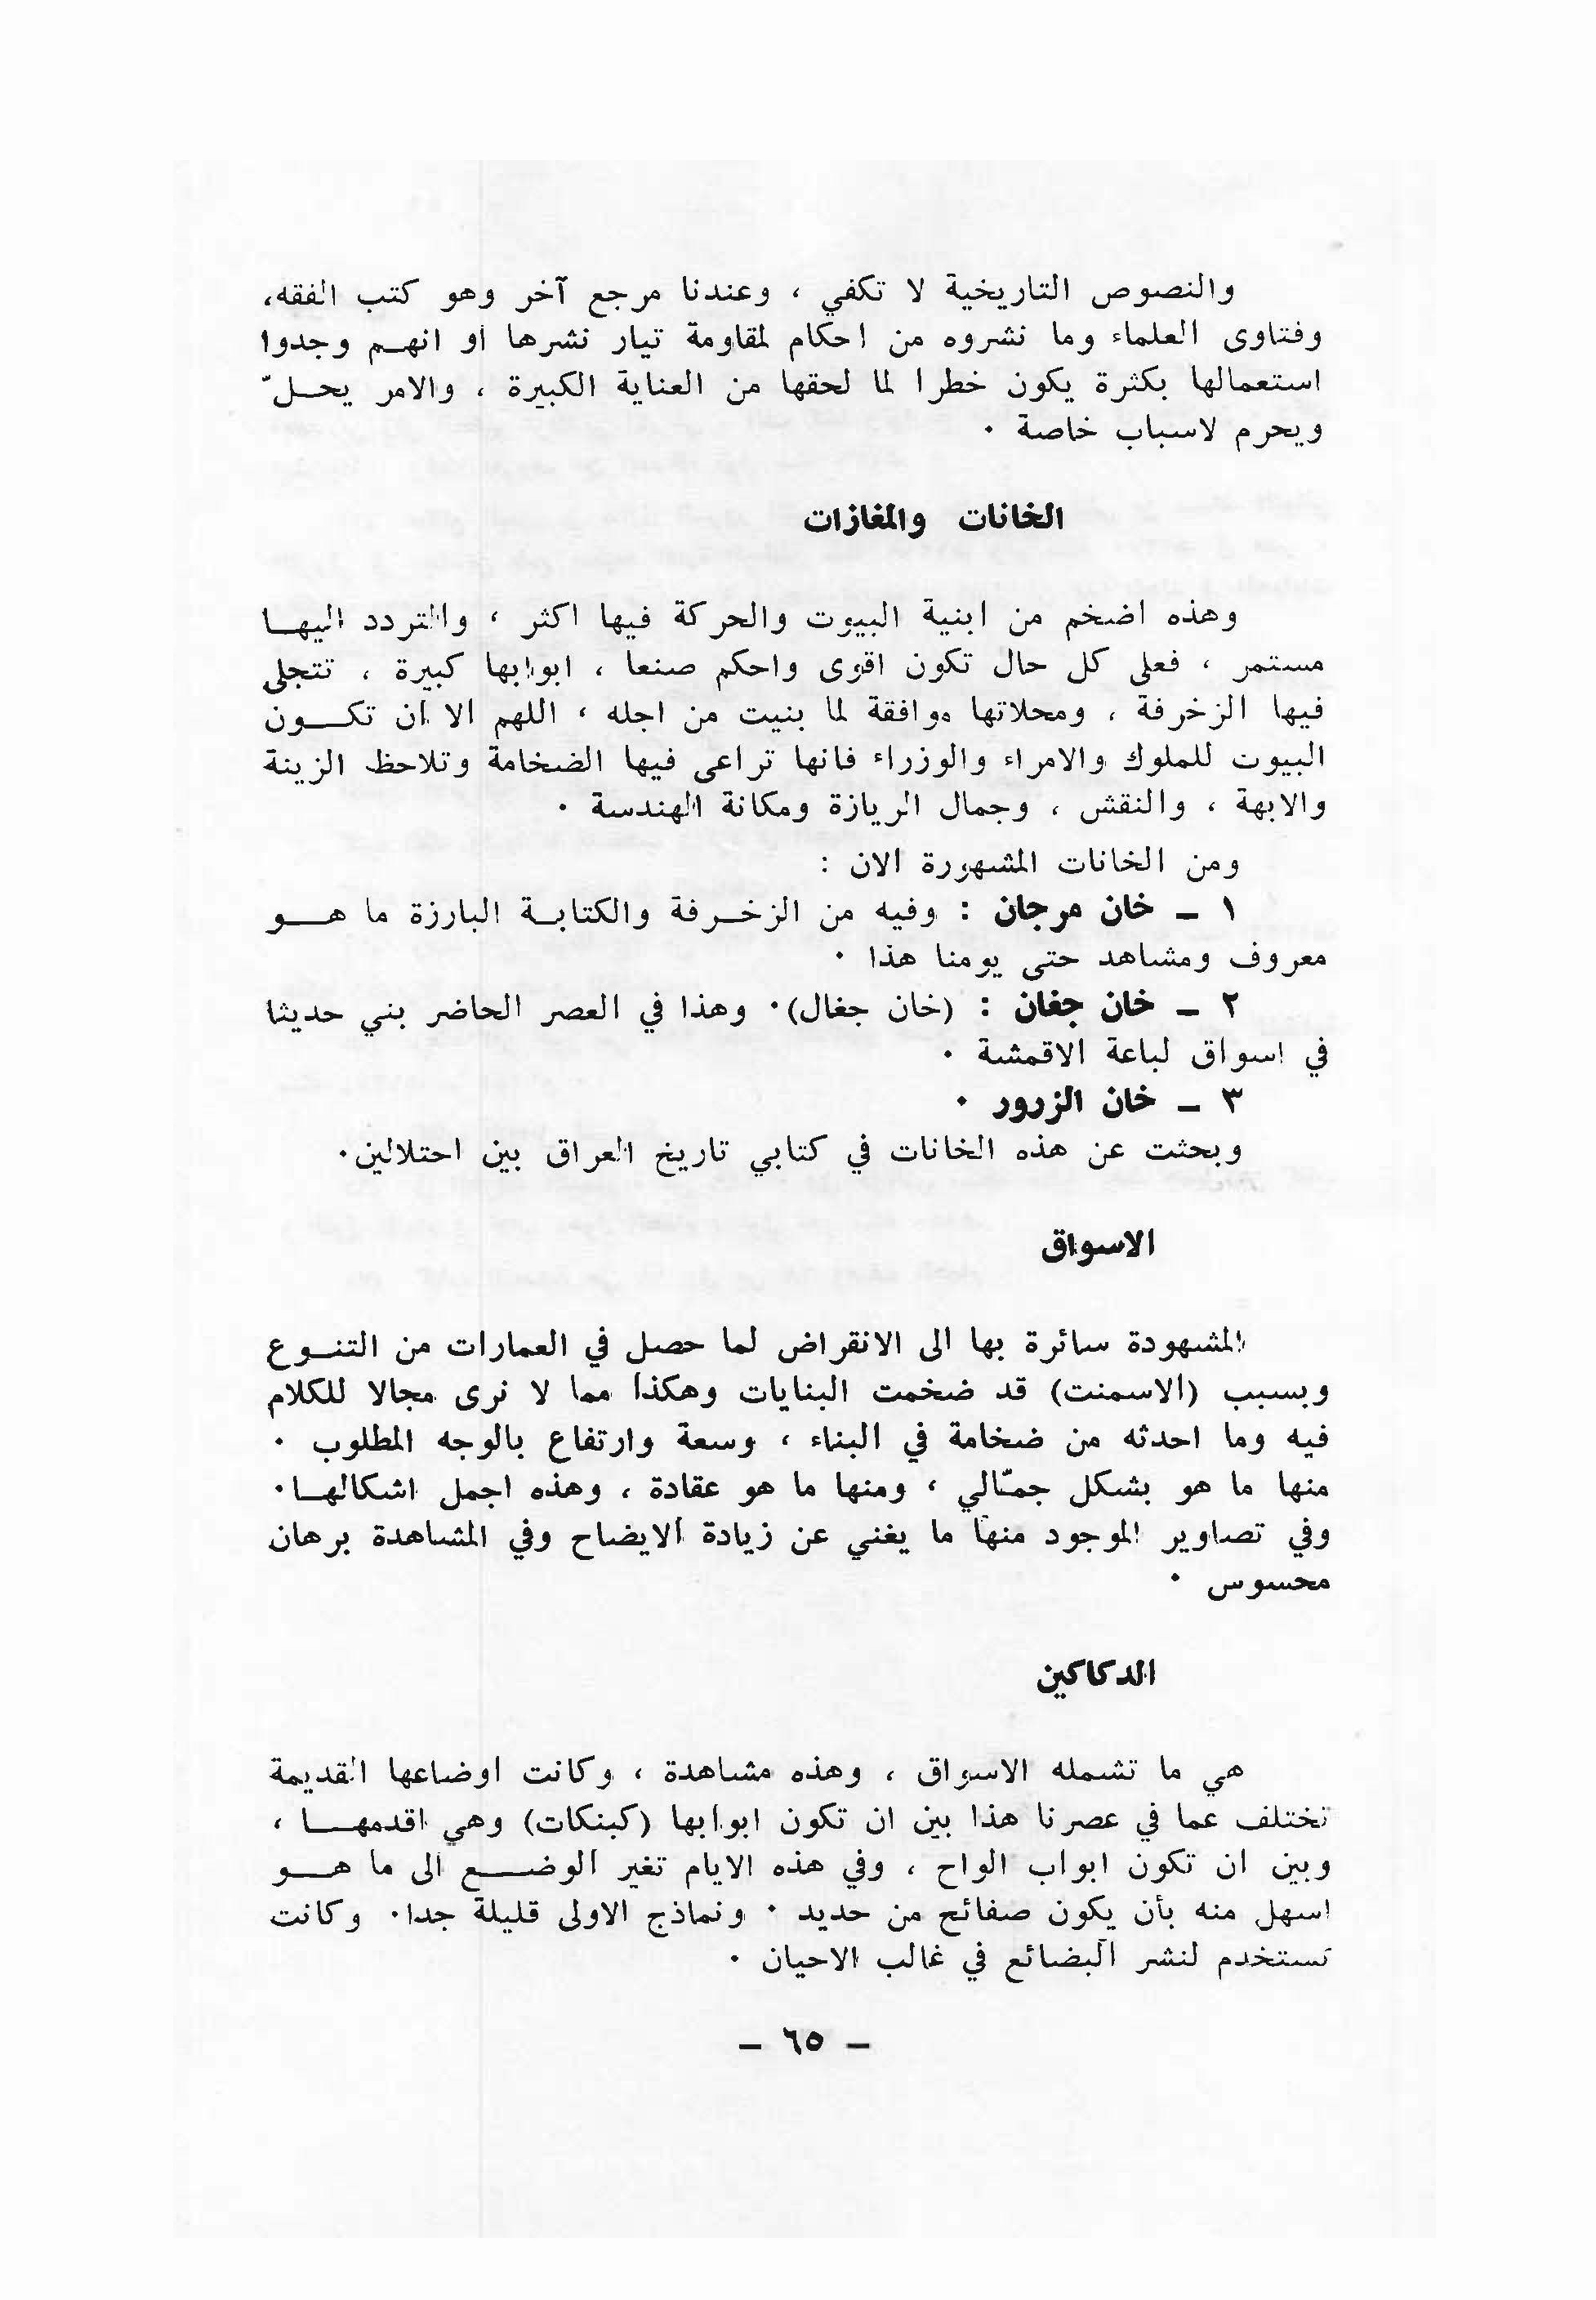 والنصوص التاريخية لا تكفي ، وعندنا مرجع آخر وهو كتب الفقه،
وفتاوى العلماء وما نشروه من احكام لمقاومة تيار نشرها أو انهم وجدوا
استعمالها بكثرة يكون خطرا لما لحقها من العناية الكبيرة ، والامر يحلّ
ويحرم لاسباب خاصة ٠
الخانات والمغازات
وهذه اضخم من ابنية البيوت والحركة فيها اكثر ، والتردد اليها
مستمر ، فعلى كل حال تكون اقوى واحكم صنعا ، ابوابها كبيرة ، تتجلى
فيها الزخرفة ، ومحلاتها موافقة لما بنيت من اجله ، اللهم الا ان تكون
البيوت للملوك والامراء والوزراء فانها تراعى فيها الضخامة وتلاحظ الزينة
والابهة ، والنقش ، وجمال الريازة ومكانة الهندسة ٠
ومن الخانات المشهورة الان :
١ – خان مرجان : وفيه من الزخرفة والكتابة البارزة ما هو
معروف ومشاهد حتى يومنا هذا ٠
٢ – خان جغان : (خان جغال)٠ وهذا في العصر الحاضر بني حديثا
في اسواق لباعة الاقمشة ٠
٣ – خان الزرور ٠
وبحثت عن هذه الخانات في كتابي تاريخ العراق بين احتلالين٠
الاسواق
المشهودة سائرة بها الى الانقراض لما حصل في العمارات من التنوع
وبسبب (الاسمنت) قد ضخمت البنايات وهكذا مما لا نرى مجالا للكلام
فيه وما احدثه من ضخامة في البناء ، وسعة وارتفاع بالوجه المطلوب ٠
منها ما هو بشكل جمّالي ، ومنها ما هو عقادة ، وهذه اجمل اشكالها٠
وفي تصاوير الموجود منها ما يغني عن زيادة الايضاح وفي المشاهدة برهان
محسوس ٠
الدكاكين
هي ما تشمله الاسواق ، وهذه مشاهدة ، وكانت اوضاعها القديمة
تختلف عما في عصرنا هذا بين ان تكون ابوابها (كبنكات) وهي اقدمها ،
وبين ان تكون ابواب الواح ، وفي هذه الايام تغير الوضع الى ما هو
اسهل منه بأن يكون صفائح من حديد ٠ ونماذج الاولى قليلة جدا٠ وكانت
تستخدم لنشر البضائع في غالب الاحيان ٠
– ٦٥ –